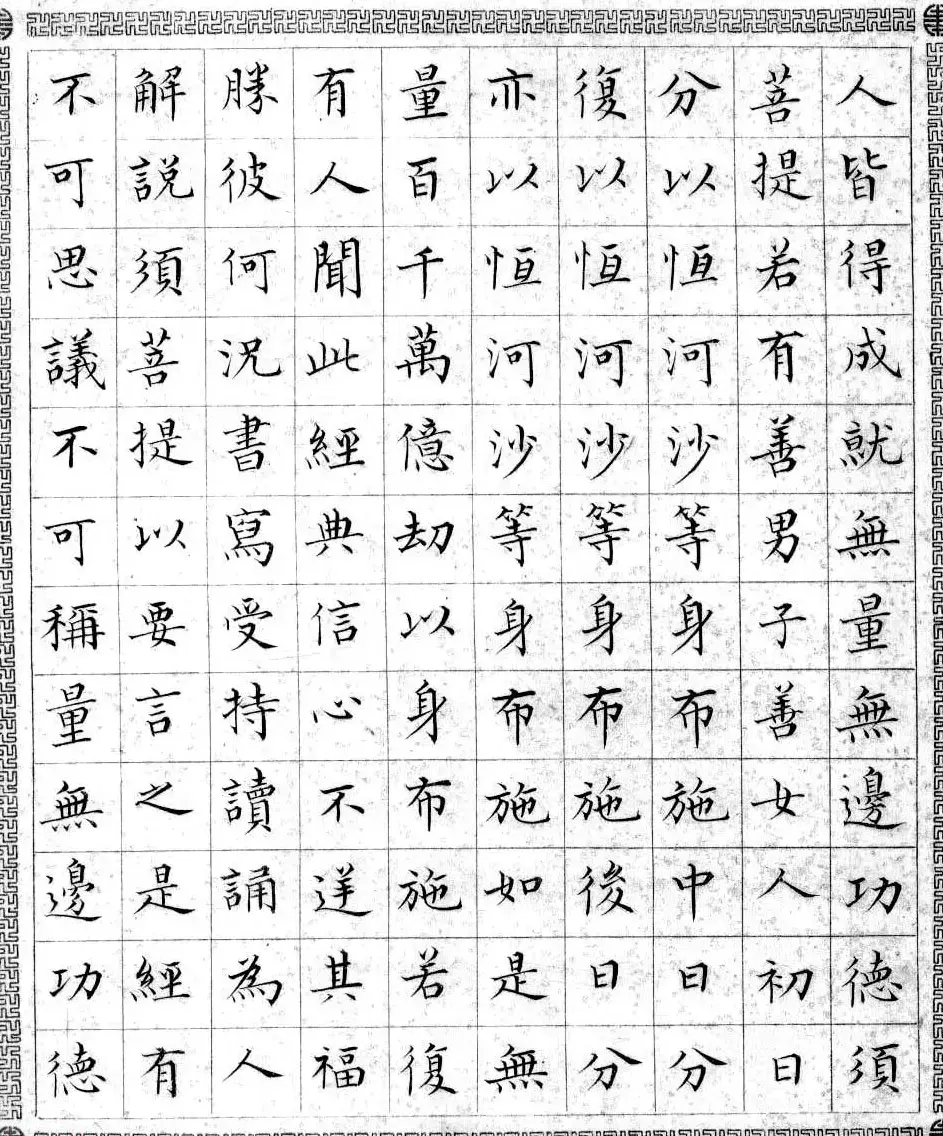 人皆得成就無量無邊功德須
菩提若有善男子善女人初日
分以恒河沙等身布施中日分
復以恒河沙等身布施後日分
亦以恒河沙等身布施如是無
量百千萬億劫以身布施若復
有人聞此經典信心不逆其福
勝彼何況書寫受持讀誦為人
解說須菩提以要言之是經有
不可思議不可稱量無邊功德